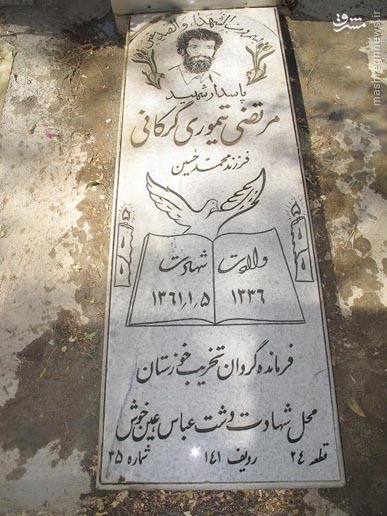 مشرق
mashreghnews.ir
رب الشهداء و الصدیقین
پاسدار شهید
مرتضی تیموری گرکانی
فرزند محمد حسین
ولادت شهادت
۱۳۳۶ ۱۳۶۱٫۱٫۵
فرمانده گردان تخریب خوزستان
محل شهادت دشت عباس عین خوش
قطعه ۲۴ ردیف ۱۴۱ شماره ۳۵